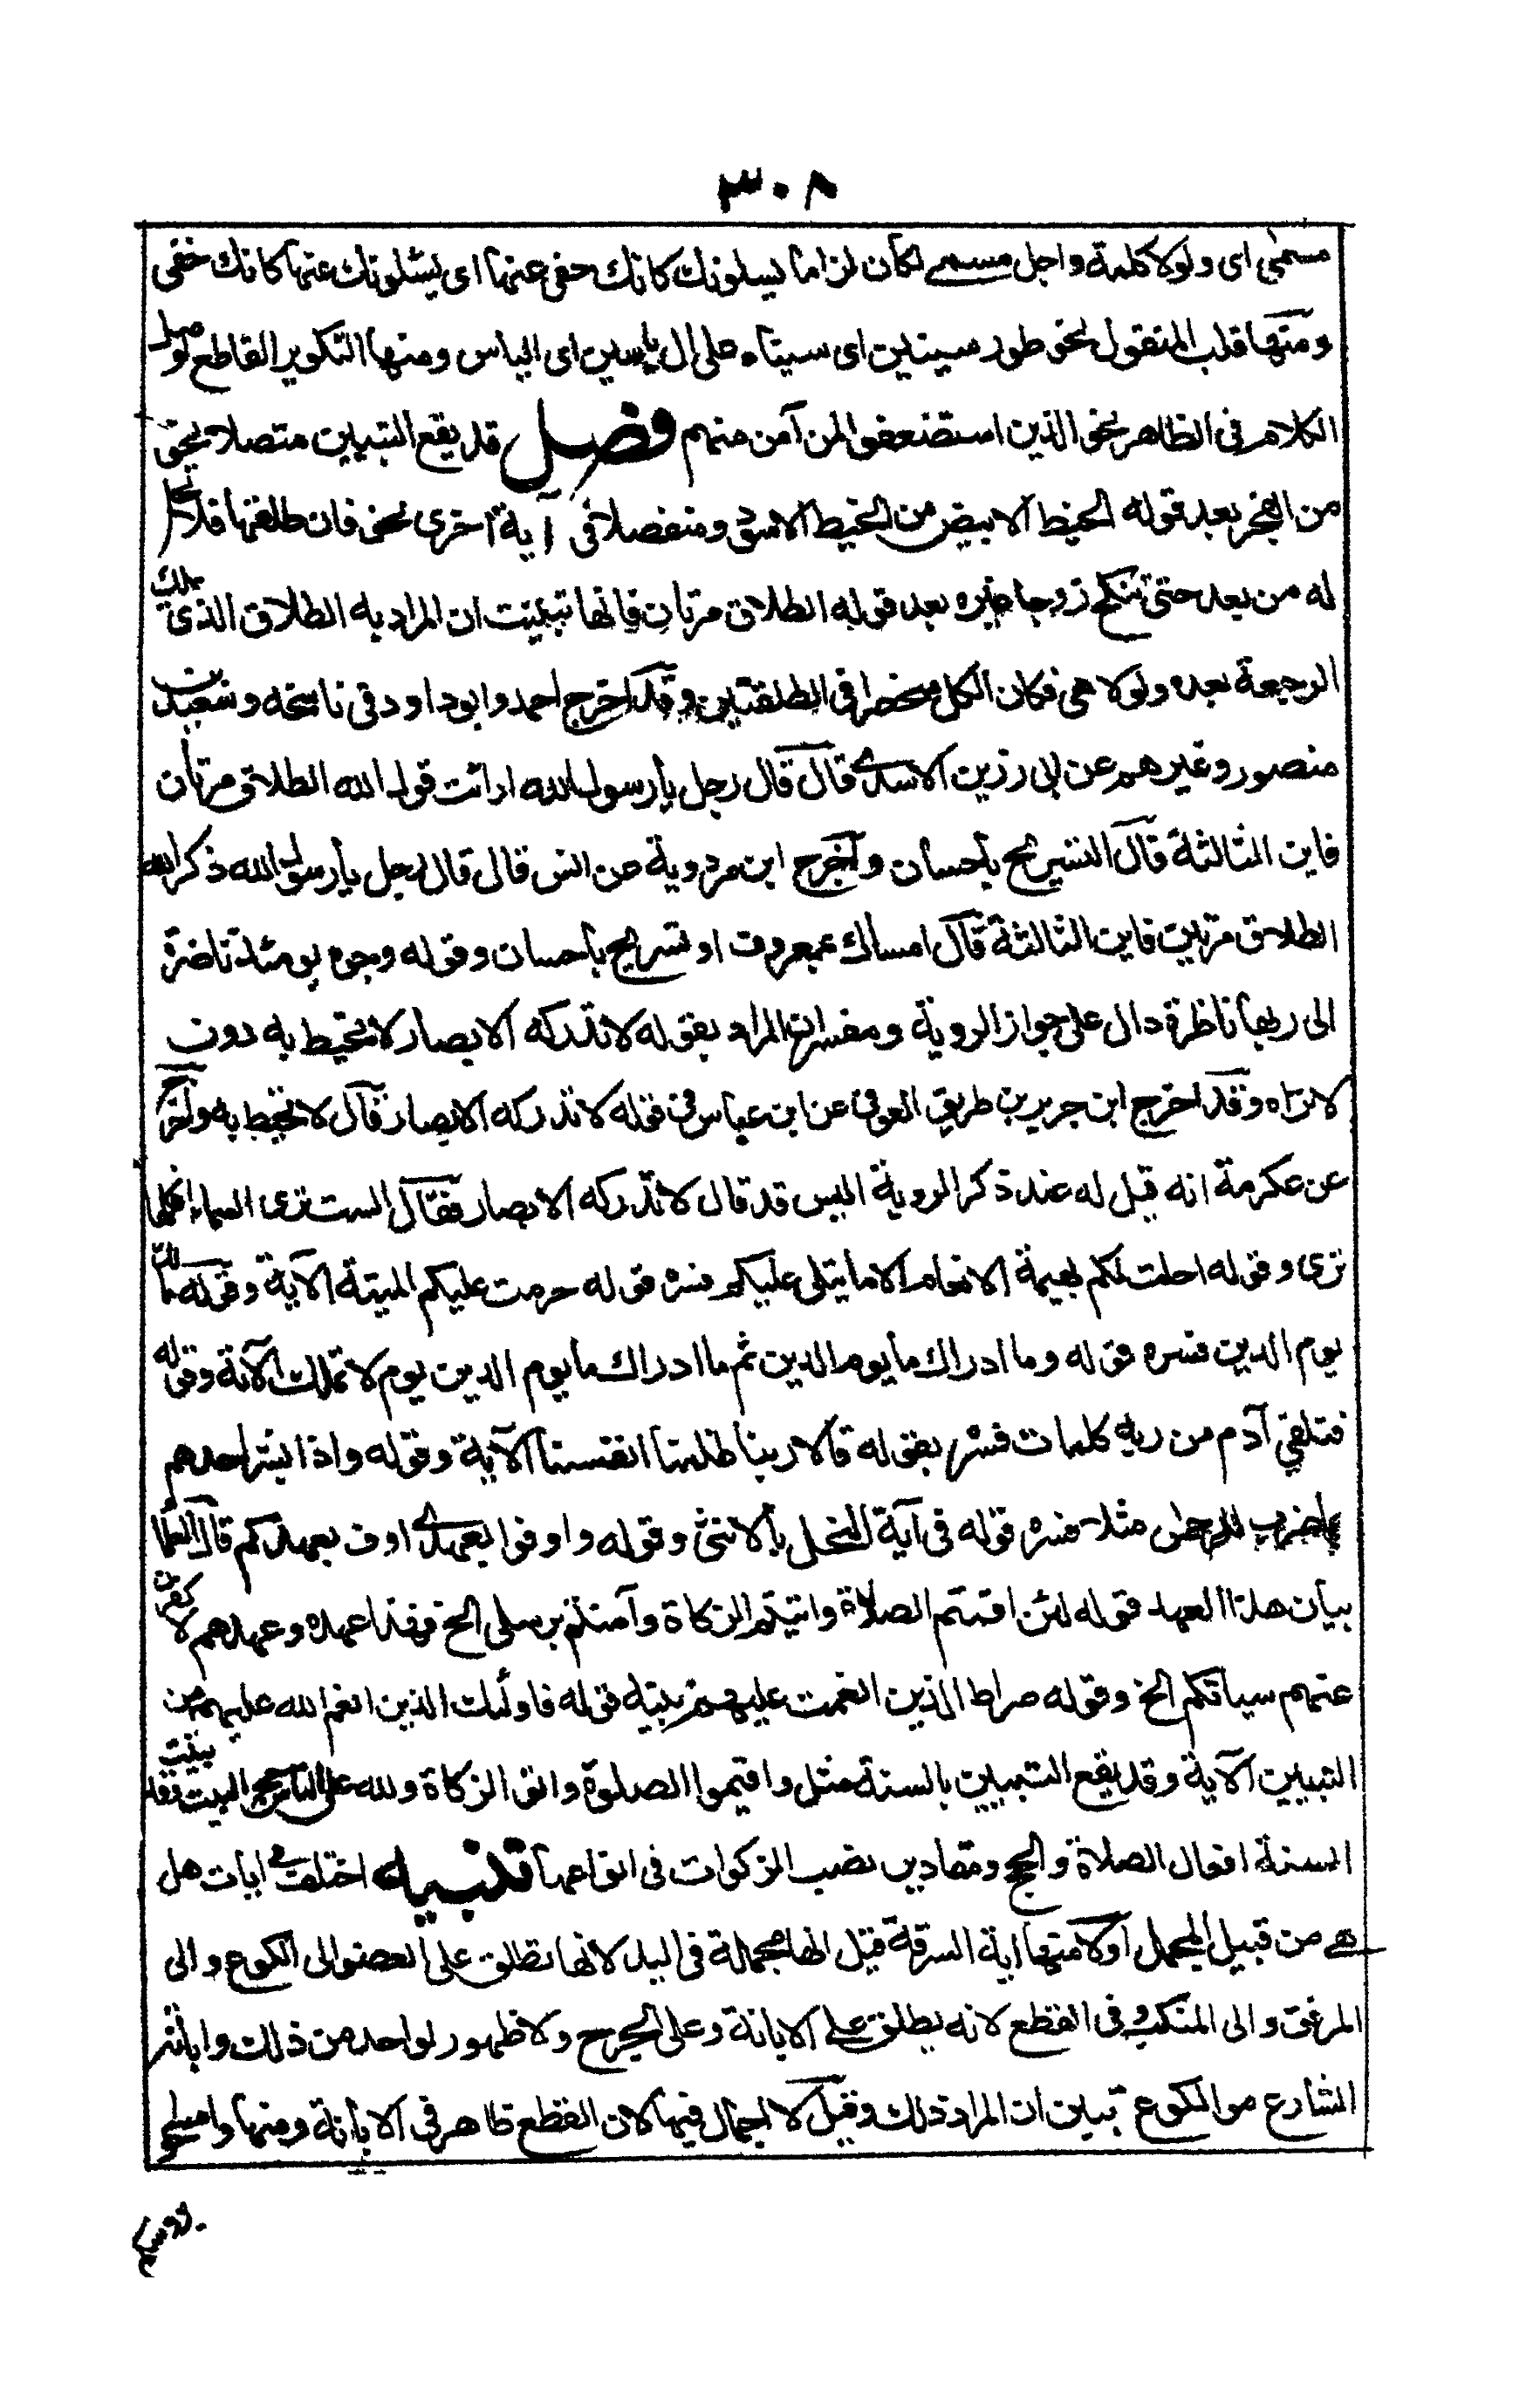 ٣٠٨
مسمى اى ولولا كلمة واجل مسمى لكان لزاما يسئلونك كانك حفى عنها اى يسئلونك عنها كانك حفى
ومنها قلب المنقول نحو طور سينين اى سيناء على ال ياسين اى الياس ومنها التكوير القاطع لوصل
الكلام فى الظاهر نحو الذين استضعفوا لمن آمن منهم فصل قد يقع التبيين متصلا نحو
من الفجر بعد قوله الخيط الابيض من الخيط الاسود ومنفصلا فى آية اخرى نحو فان طلقها فلا تحل
له من بعد حتى تنكح زوجا غيره بعد قوله الطلاق مرتان فانها تبينت ان المراد به الطلاق الذى تملك
الرجعة بعده ولولا هى فكان الكل منحصرا فى الطلقتين وقد اخرج احمد وابوداود فى ناسخه وسعيد بن
منصور وغيرهم عن ابى رزين الاسدى قال قال رجل يا رسول الله ارائت قول الله الطلاق مرتان
فاين الثالثة قال التسريح باحسان واخرج ابن مردوية عن انس قال قال رجل يا رسول الله ذكر الله
الطلاق مرتين فاين الثالثة قال امساك بمعروف او تسريح باحسان وقوله وجوه يومئذ ناضرة
الى ربها ناظرة دال على جواز الروية ومفسران المراد بقوله لا تدركه الابصار لا تحيط به دون
لا تراه وقد اخرج ابن جرير بن طريق العوفى عن ابن عباس فى قوله لا تدركه الابصار قال لا تحيط به واخرج
عن عكرمة انه قيل له عند ذكر الروية اليس قد قال لا تدركه الابصار فقال الست ترى السماء افكلها
ترى وقوله احلت لكم بهيمة الانعام الا ما يتلى عليكم فسره قوله حرمت عليكم الميتة الآية وقوله مالك
يوم الدين فسره قوله وما ادراك ما يوم الدين ثم ما ادراك ما يوم الدين يوم لا تملك الآية وقوله
فتلقى آدم من ربه كلمات فسر بقوله قالا ربنا ظلمنا انفسنا الآية وقوله واذا بشر احدهم
بما ضرب للرحمن مثلا فسره قوله فى آية النحل بالانثى وقوله واوفوا بعهدى اوف بعهدكم قال العلما
بيان هذا العهد قوله لئن اقمتم الصلاة واتيتم الزكاة وآمنتم برسلى الخ فهذا عهده وعهدهم لاكفرن
عنهم سياتكم الخ وقوله صراط الذين انعمت عليهم بينه قوله فاولئك الذين انعم الله عليهم من
النبيين الآية وقد يقع التبيين بالسنة مثل واقيموا الصلوة واتو الزكاة ولله على الناس حج البيت وقد بينت
السنة افعال الصلاة والحج ومقادير نصب الزكوات فى انواعها تنبيه اختلف فى ايات هل
هى من قبيل المجمل اولا منها اية السرقة قيل انها مجملة فى اليد لانها تطلق على العضو الى الكوع والى
المرفق والى المنكب وفى القطع لانه يطلق على الابانة وعلى الجرح ولا ظهور لواحد من ذلك وابانة
الشارع من الكوع تبين ان المراد ذلك وقيل لا اجمال فيها لان القطع ظاهر فى الابانة ومنها وامسحو